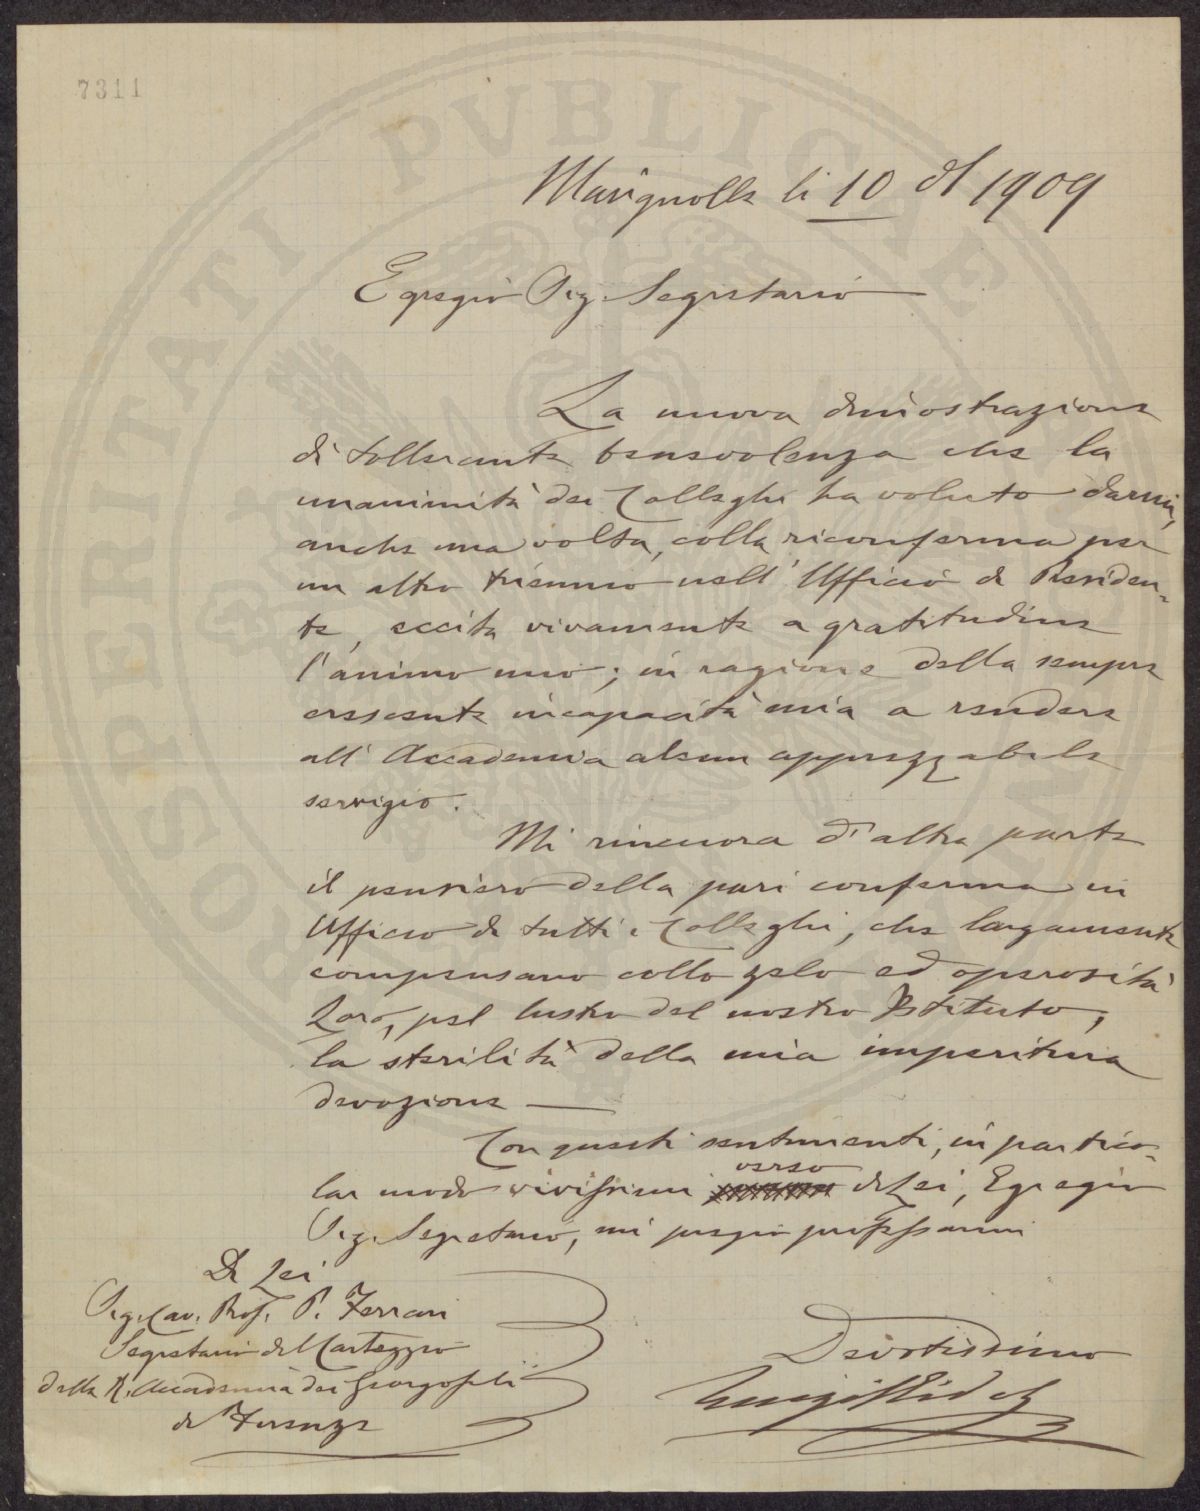 7311
PROSPERITATI PVBLICAE
Marignolle li 10 1909
Egregio Sig. Segretario
La nuova dimostrazione
di tollerante benevolenza che la
unanimità dei Colleghi ha voluto darmi,
anche una volta, colla riconferma per
un altro triennio nell' Ufficio di Presiden-
te, eccita vivamente a gratitudine
l'animo mio; in ragione della sempre
crescente incapacità mia a rendere
all' Accademia alcun apprezzabile
servigio.
Mi rincuora d'altra parte
il pensiero della pari conferma in
Ufficio di tutti i Colleghi, che largamente
compensano collo zelo ed operosità
Loro, pel lustro del nostro Istituto,
la sterilità della mia imperitura
devozione —
Con questi sentimenti, in partico-
lar modo vivissimi verso di Lei, Egregio
Sig. Segretario, mi pregio professarmi
Di Lei
Sig. Cav. Prof. P. Ferrari
Segretario del Carteggio
della R. Accademia dei Georgofili
di Firenze
Devotissimo